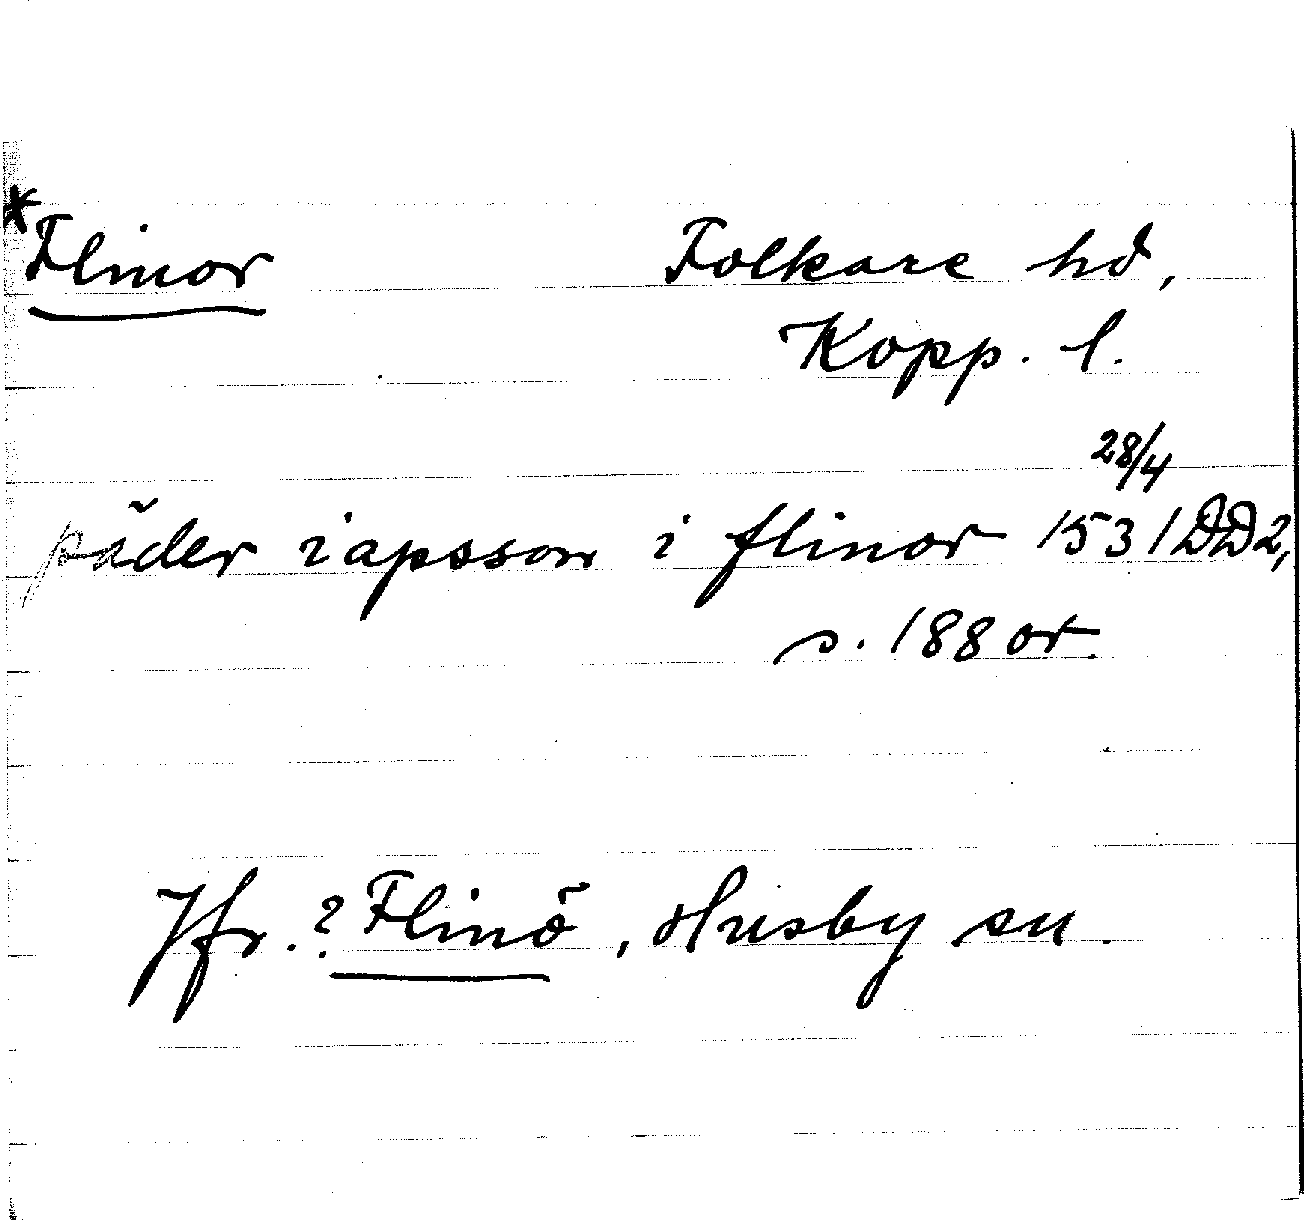 *Flinor Folkare hd,
Kopp. l.
28/4
päder iapsson i flinor 1531 DD2,
s. 188 or.
Jfr. ? Flinö, Husby sn.